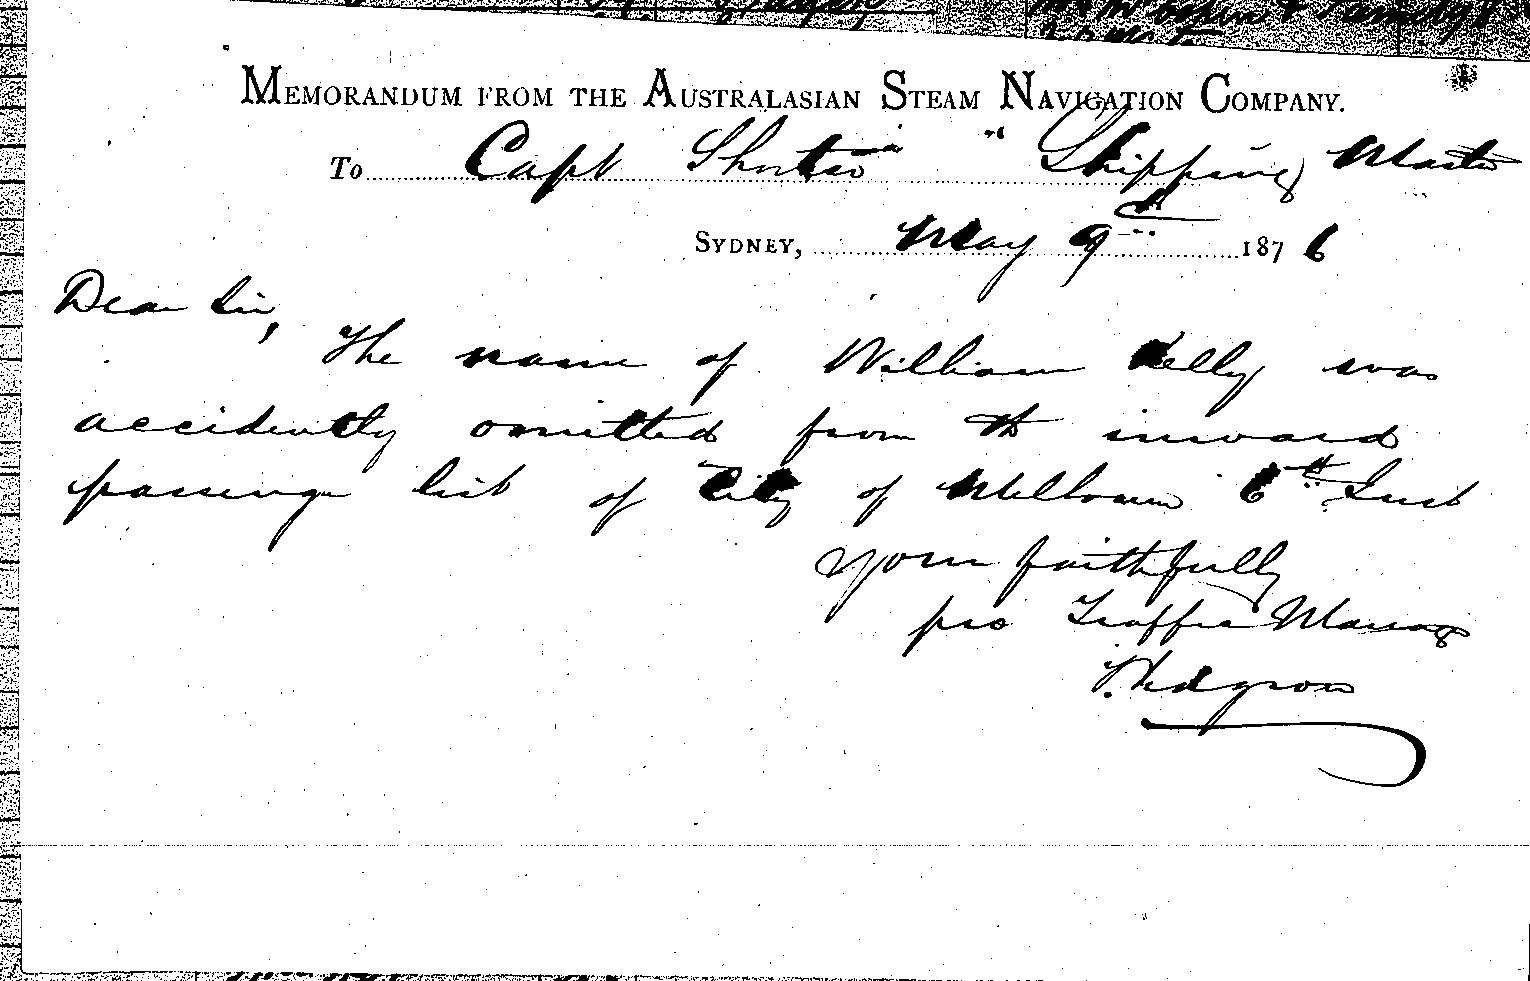 MEMORANDUM FROM THE AUSTRALASIAN STEAM NAVIGATION COMPANY.
To Capt Shipping Master
SYDNEY, May 9th 1876
Dear Sir,
The name of William Kelly was
accidently omitted from the inward
passenger list of City of Melbourne 6th Inst
Yours faithfully
pro Traffic Manager